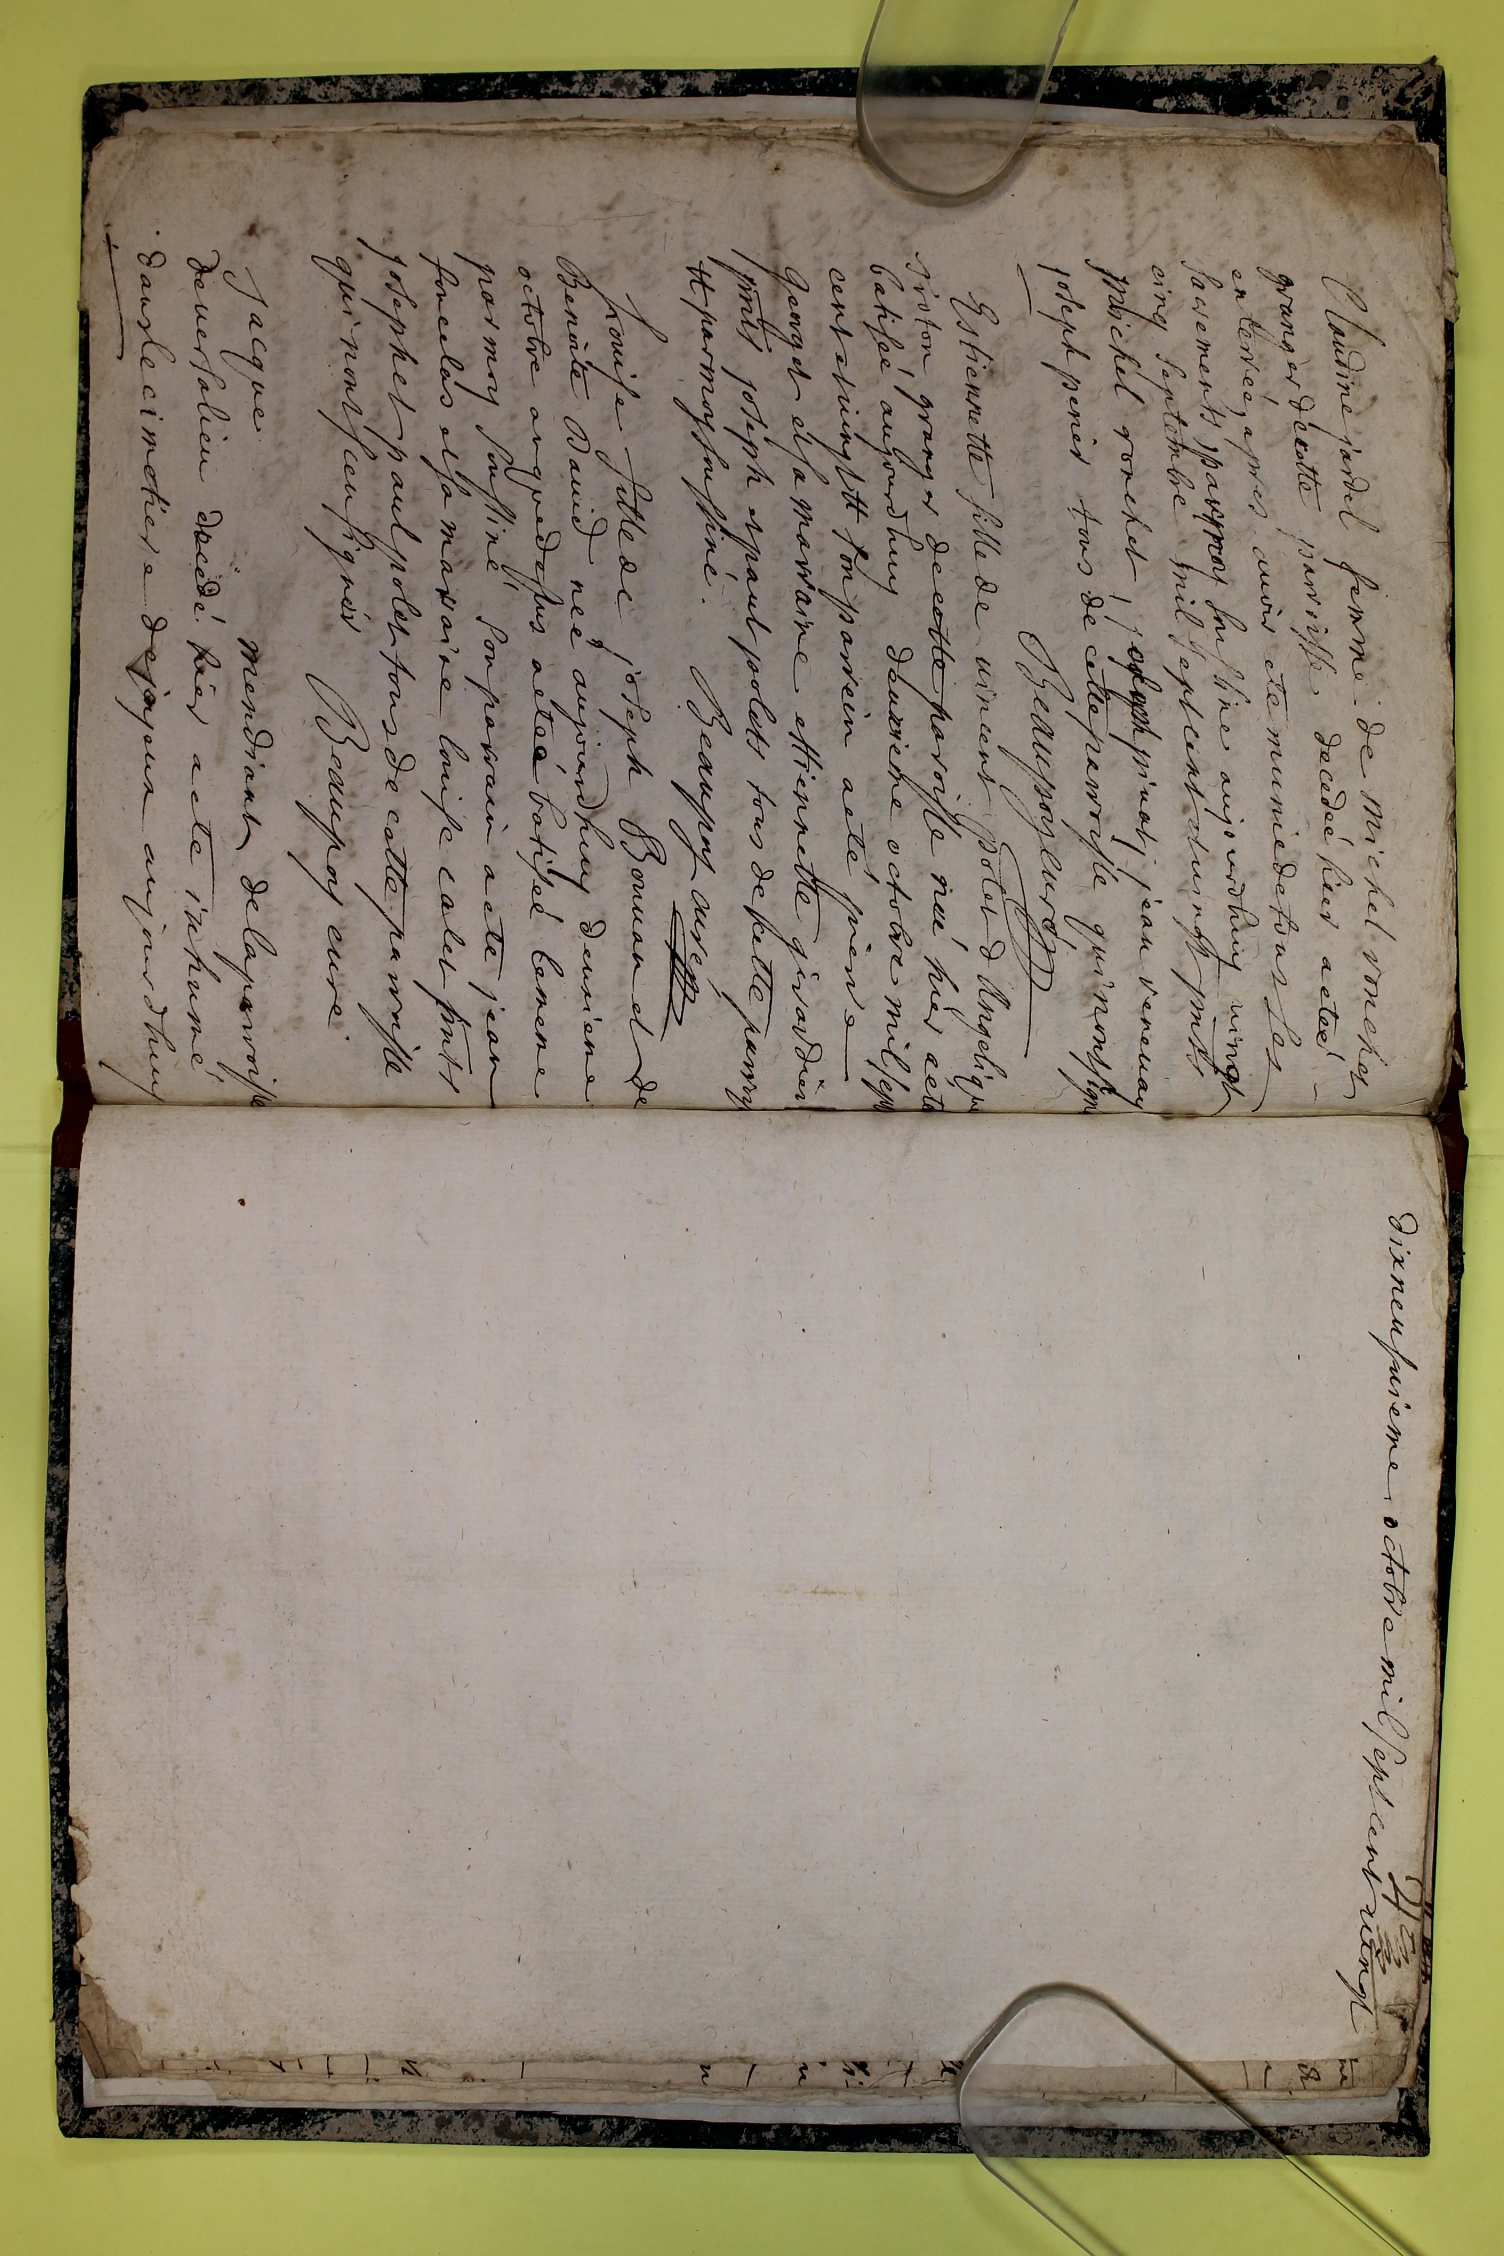 Claudine jardel femme de michel ronchet
granger decette parroisse decedeé hier aeteé
enterreé, apres auoir ete muniedetous les
sacrements parmoy soussine aujourdhuy vingt
cinq septembre mil septcent vingt pnts
michel ronchet, joseph pinat, jean
joseph perier tous de cetteparroisse quinontsigne
Beaupoy curé

Estiennette fille de vincent polet et dAngelique
sirton granger decette parroisse neé hier aete
batiseé aujourdhuy deuxieme octobre mil sept
cent vingt tt son parrein aete pierre
George et sa marraine ettiennette girardier
pnts joseph et paul polets tous decette parroi
tt parmoy soussiné. Beaupoy curé

Louise fille de joseph Bonnand et de
Benoite David neé aujourdhuy deuxieme
octobre anquedessus aeteé batiseé lememe
parmoy soussiné Son parrain aete jean
foncelas et sa marraine louise calet pnts
josephet paul polet tous de cette parroisse
qui nont sceu signer Beaupoy curé

Jacque mendiant de laparroisse
deuersalieu decedé hier aete inhumé
dans le cimetiere de jayeux aujourdhuy
dixneufuieme octobre mil septcent vingt